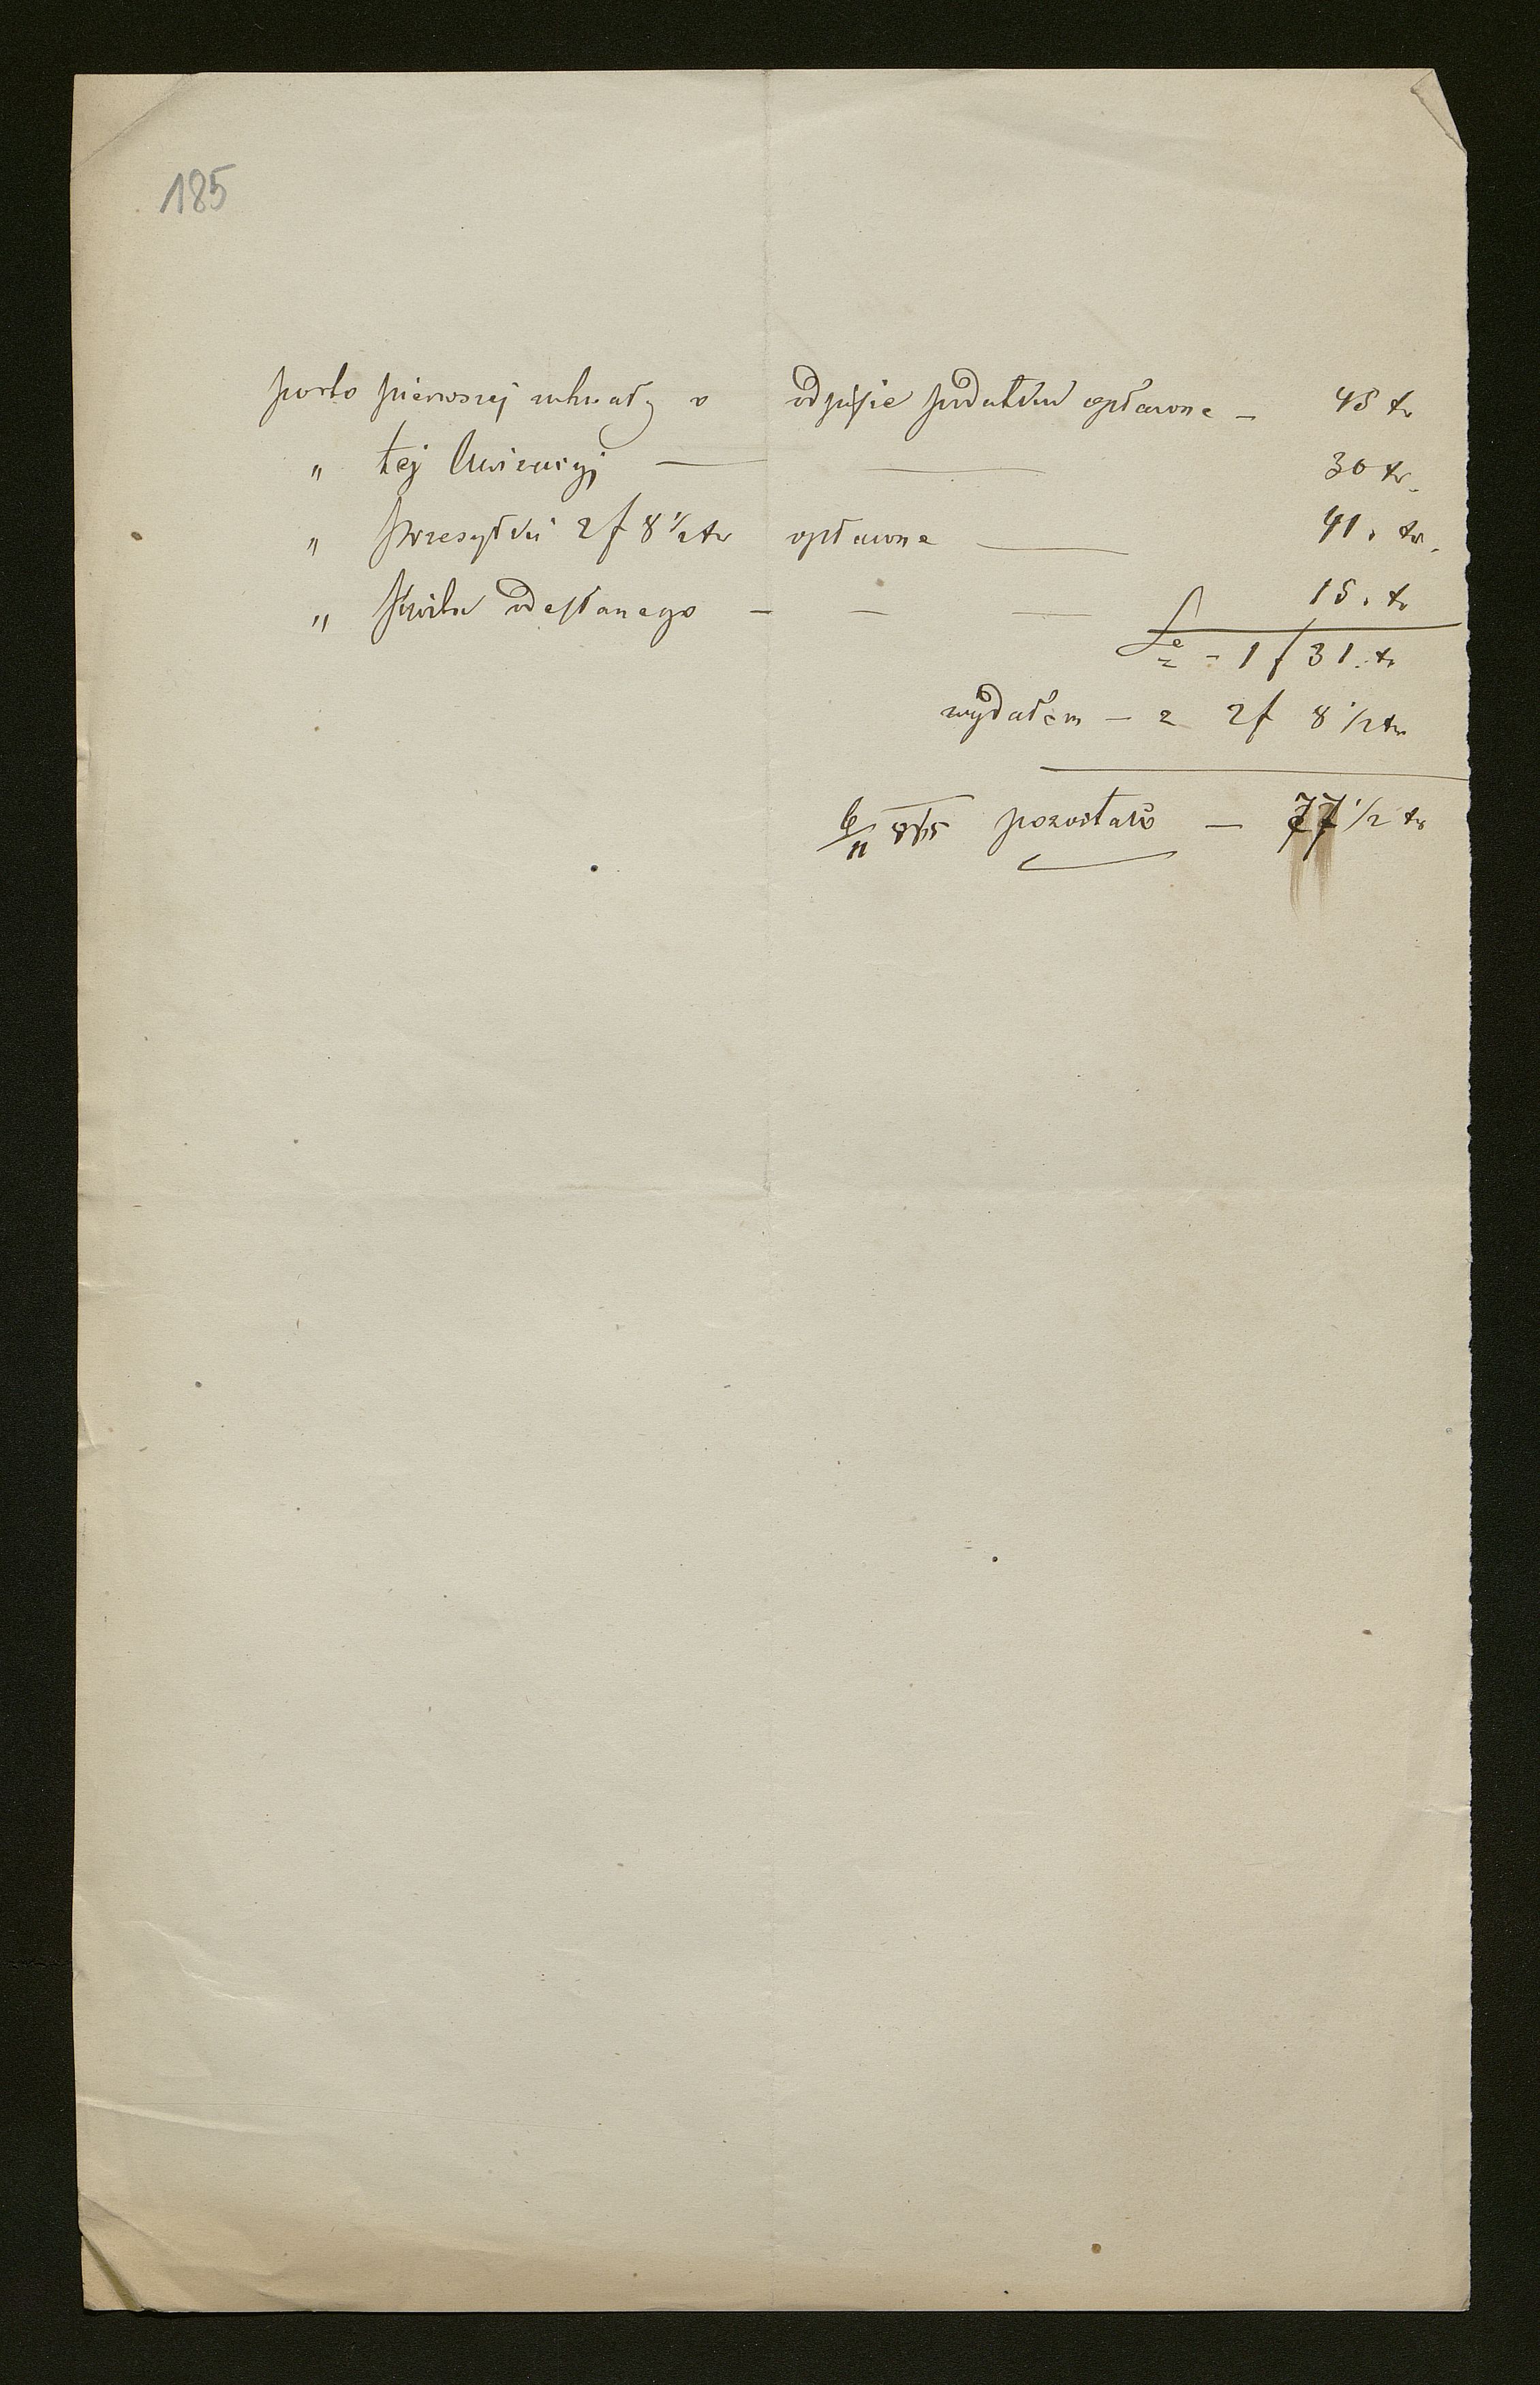 185
porto pierwszej uchwały o odpisie podatku opłacone — 45 kr
" tej — — 30 kr.
" przesyłki 2 f 8 1/2 kr opłacone — 41. kr.
" kwitu odesłanego — — — 15. kr
1 f 31. kr
wydałem — z 2 f 8 1/2 kr
6/11 865 pozostało — 77 1/2 kr